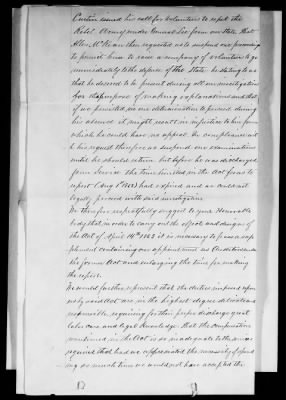 Curtin issued his call for Volunteers to repel the
Rebel Army under General Lee from our State that
Allen McKean then requested us to suspend our proceedings
to permit him to raise a company of volunteers to go
immediately to the defence of the State he stating to us
that he desired to be present during all our investigations
for the purpose of making explanations and that
if we persisted in our determination to proceed during
his absence it might result in injustice to him from
which he could have no appeal. In compliance with
his request therefore we suspended our examinations
until he should return but before he was discharged
from Service the time limited in the Act for us to
report (Aug 1st 1863) had expired and we could not
legally proceed with said investigations
We therefore respectfully suggest to your Honorable
body that in order to carry out the object and design of
the Act of April 14th 1863 it is necessary to pass a sup-
plement containing our appointment as Auditors under
the former Act and enlarging the time for making
the report.
We would further represent that the duties imposed upon
us by said Act are in the highest degree delicate and
responsible, requiring for their proper discharge great
labor care and legal knowledge that the compensation
mentioned in the Act is so inadequate to the services
required that had we apprehended the necessity of spend-
ing so much time we would not have accepted the